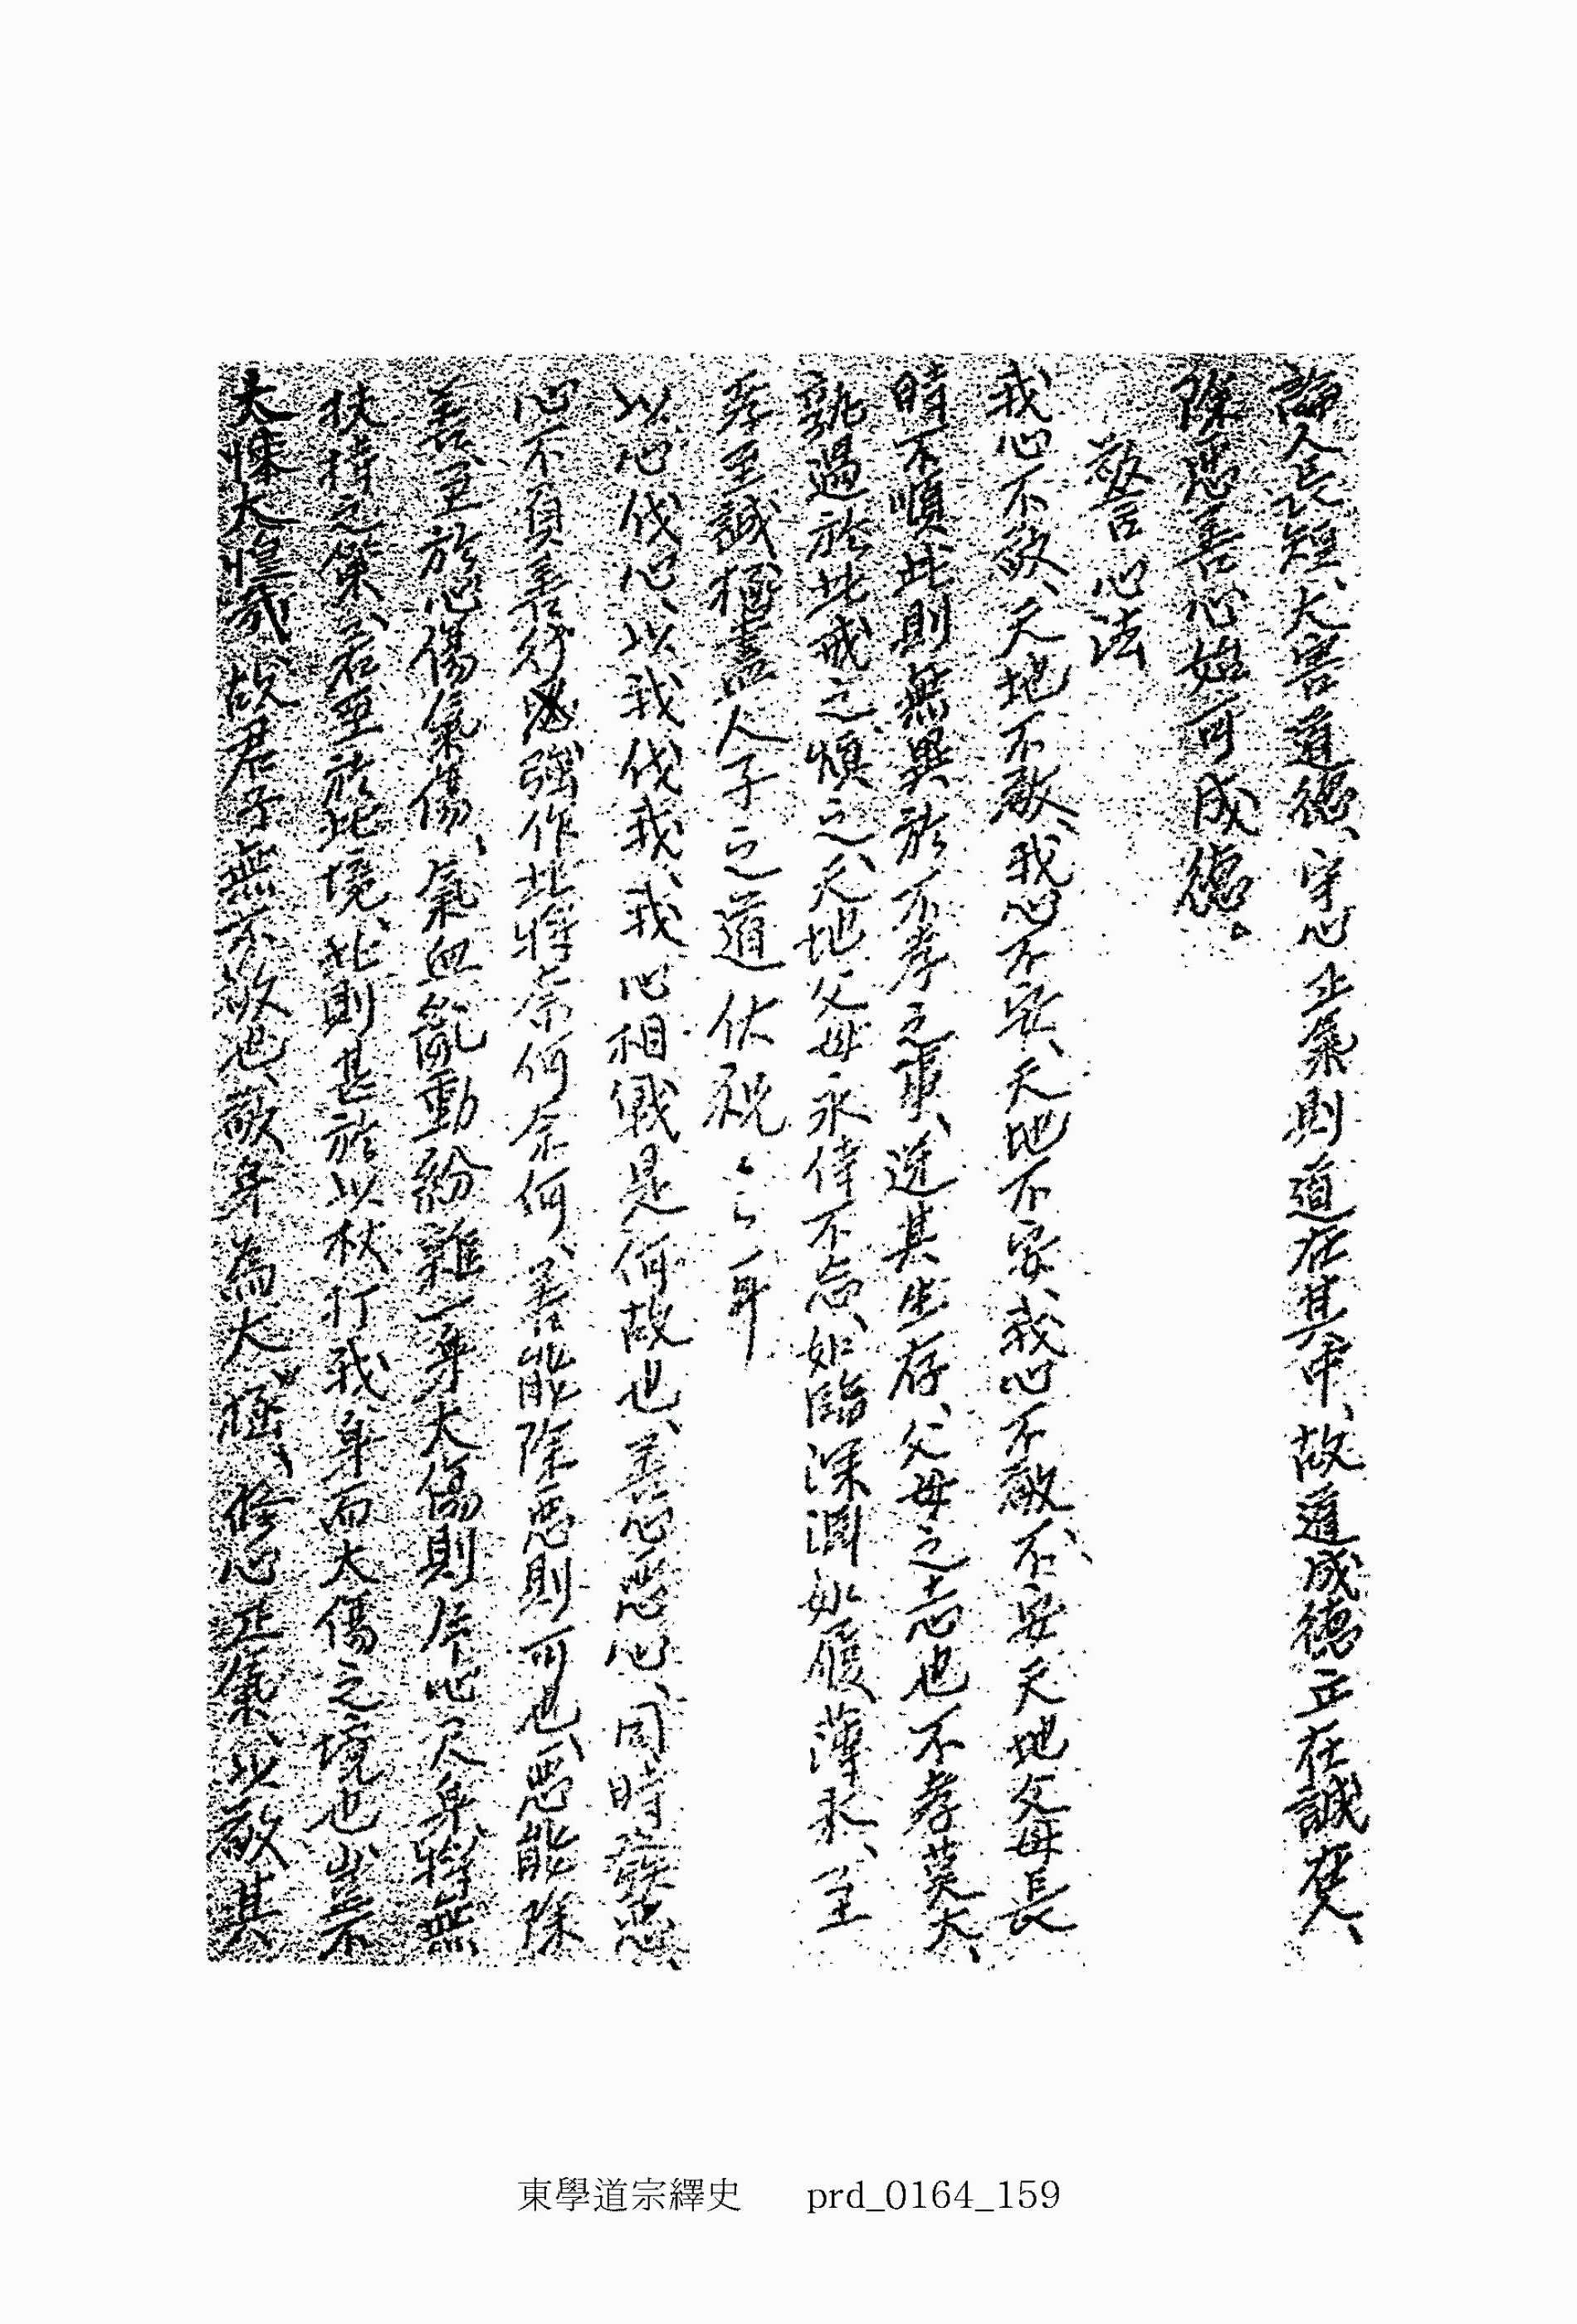 論人長短、大害道德、守心正氣則道在其中、故道成德立在誠在人、
除惡善心始可成德。
警心法
我心不敬、天地不敬、我心不安、天地不安、我心不敬不安、天地父母長
時不順此則無異於不孝之事、逆其生存、父母之志也不孝莫大、
孰過於此戒之愼之、天地父母永侍不忘、如臨深淵如履薄氷、至
孝至誠極盡人子之道伏祝〻〻耳
以心伐心、以我伐我、我心相戰是何故也、善心惡心、同時發惡
心不負善行强作此將奈何奈何、善能除惡則可也、惡能除
善、至於心傷氣傷、氣血亂動紛雜一身大傷則片心尺身將無
扶持之策、若至於此境、此則甚於以杖打我身而大傷之境也豈不
大悚大惶哉故君子無不敬也、敬身爲大極、修心正氣以敬其
東學道宗繹史 prd_0164_159